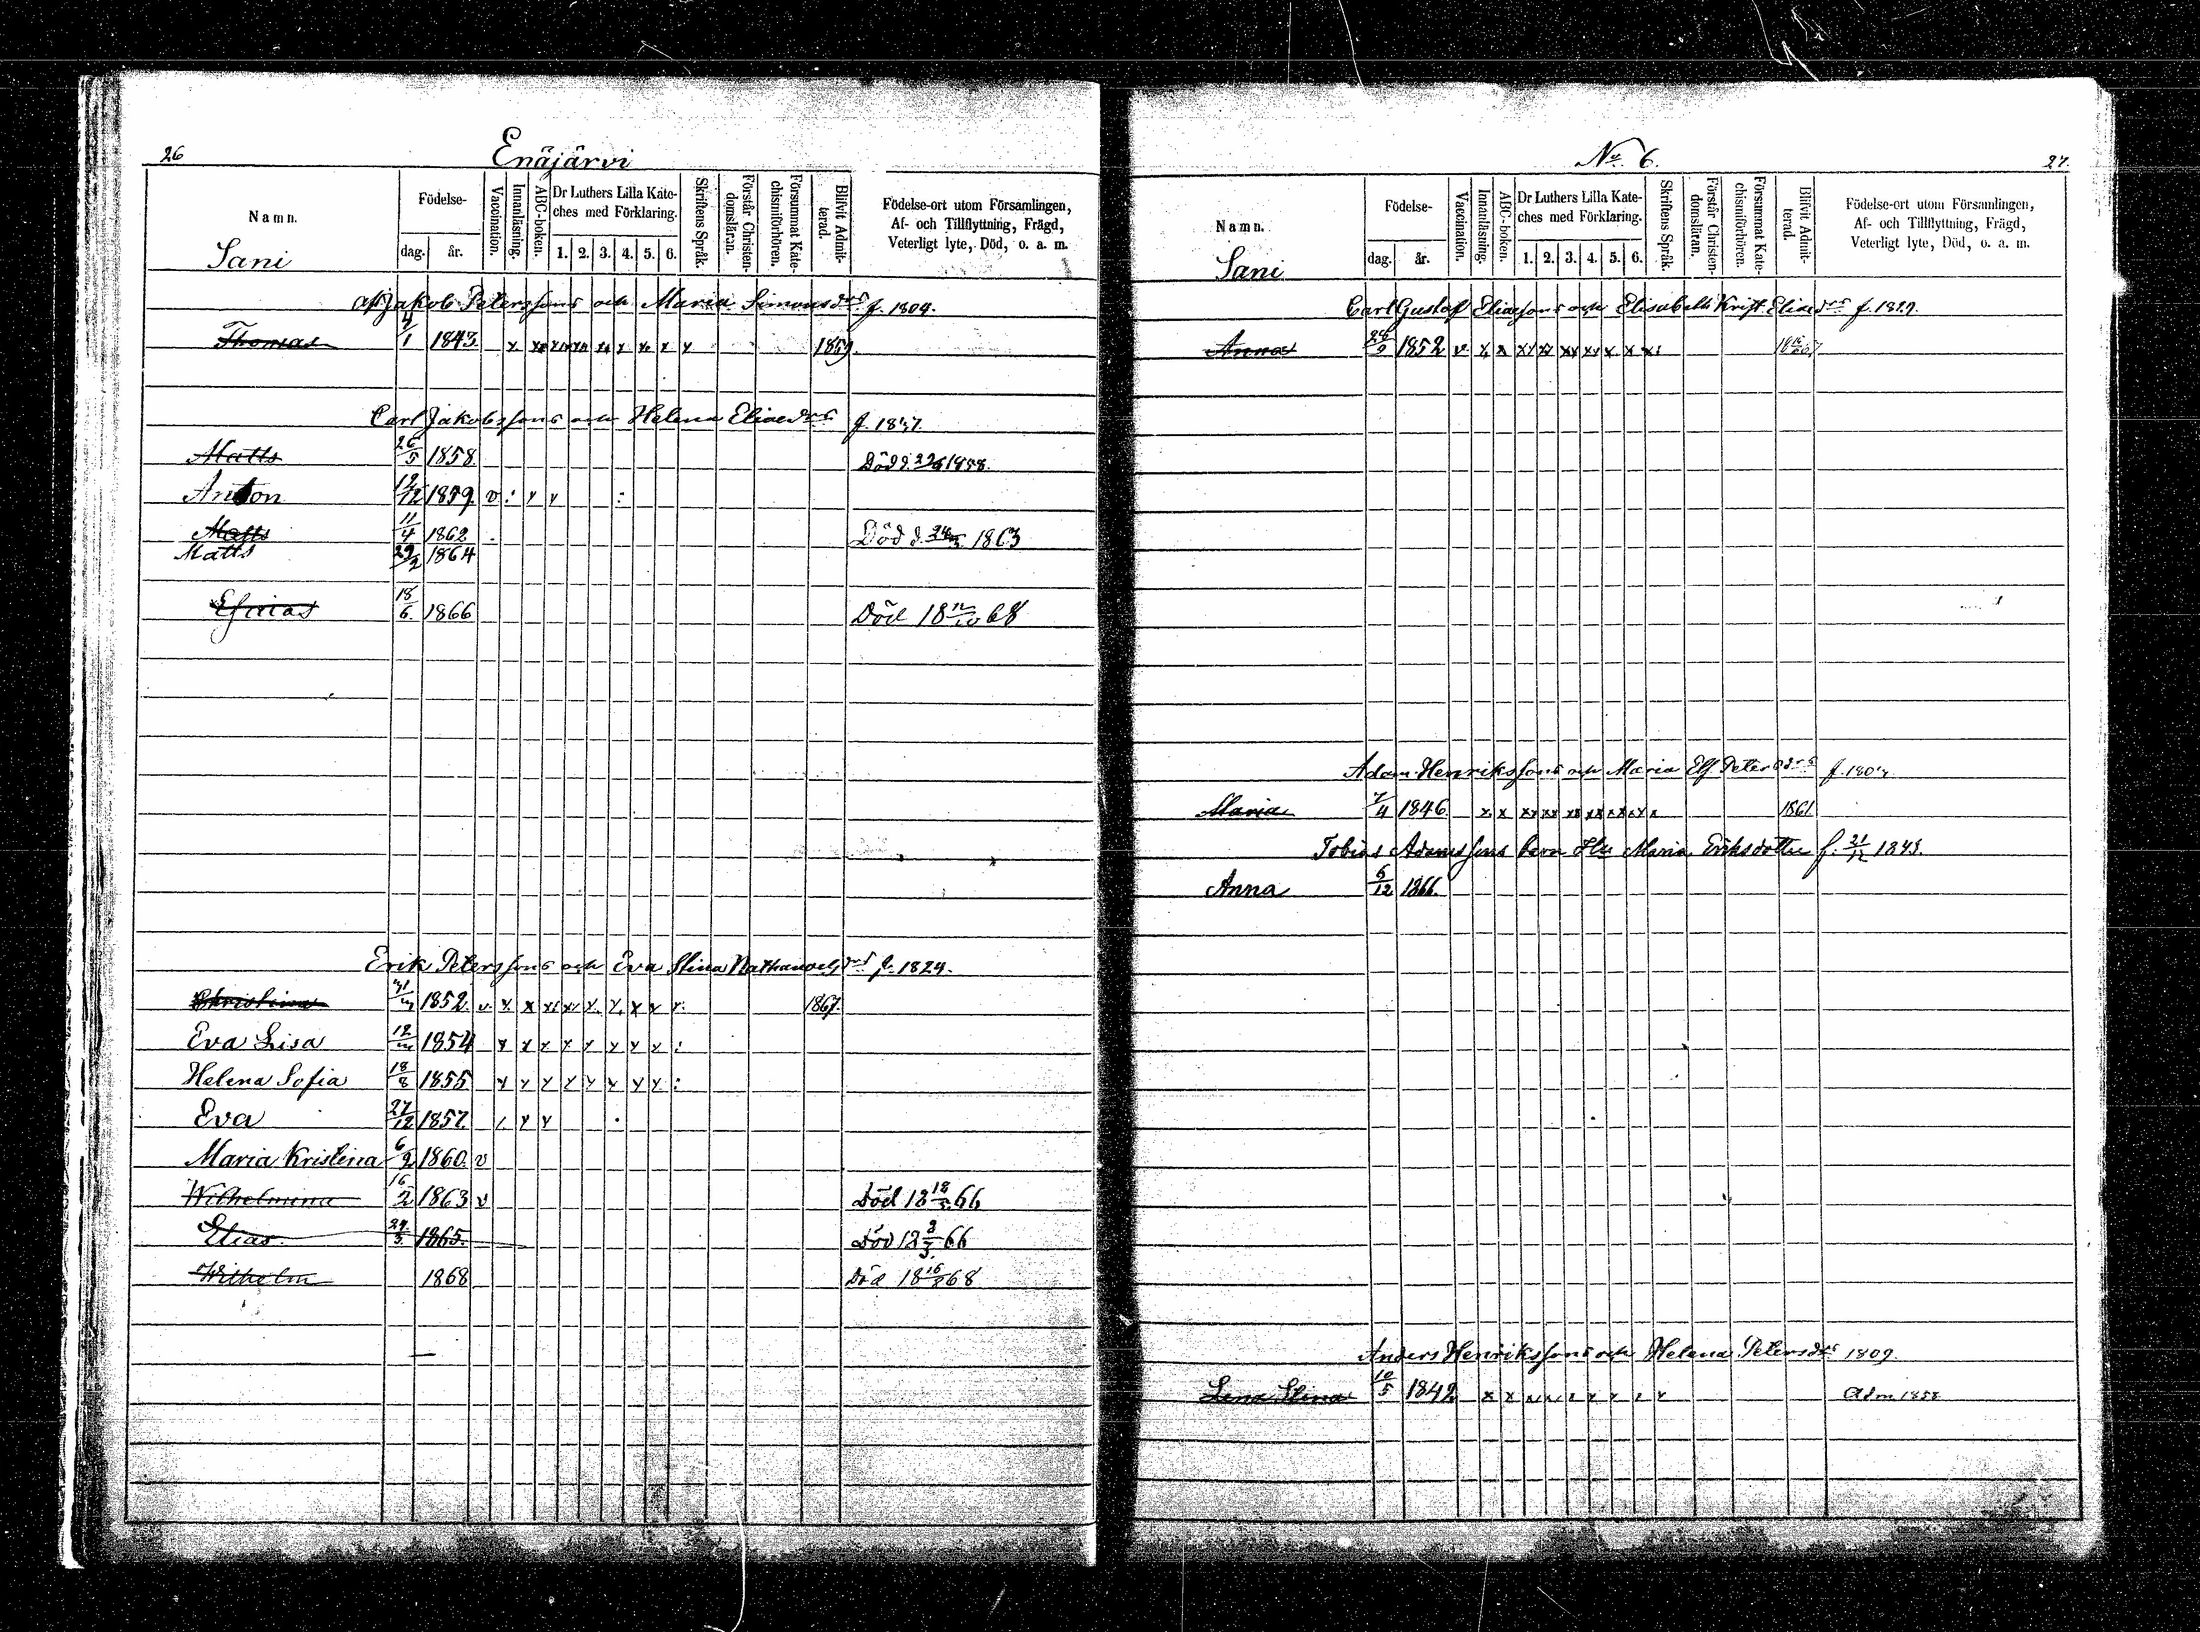 26
Enäjärvi
Namn.
Födelse-
dag. år.
Vaccination.
Innanläsning.
ABC-boken.
Dr Luthers Lilla Kate-
ches med Förklaring.
1. 2. 3. 4. 5. 6.
Skriftens Språk.
Förstår Christen-
domsläran.
Försummat Kate-
chismiförhören.
Blifvit Admit-
terad.
Födelse-ort utom Församlingen,
Af- och Tillflyttning, Frägd,
Veterligt lyte, Död, o. a. m.
Sani
Jakob Peterssons och Maria Simonsdrs f. 1804.
Thomas 4/1 1843 x 1859.
Carl Jakobssons och Helena Eliaedrs
Matts 26/5 1858 Död d. 1858.
Anton 12/12 1859 v : x x :
Matts 11/4 1862 Död d. 1863
Matts 29/2 1864
18/6 1866 Död 18 68
Erik Peterssons och Eva Stina f. 1824.
Christina 1852 v. x. x 1867.
Eva Lisa 1854 x x x x x x x x :
Helena Sofia 18/8 1855 x x x x x x x x :
Eva 27/12 1857 x x
Maria Kristina 6/2 1860 v
Wilhelmina 16/2 1863 v Död 18 18/3 66
Elias 29/3 1865 Död 18 3/3 66
Wilhelm 1868 Död 18 68
No 6.
27.
Namn.
Födelse-
dag. år.
Vaccination.
Innanläsning.
ABC-boken.
Dr Luthers Lilla Kate-
ches med Förklaring.
1. 2. 3. 4. 5. 6.
Skriftens Språk.
Förstår Christen-
domsläran.
Försummat Kate-
chismiförhören.
Blifvit Admit-
terad.
Födelse-ort utom Församlingen,
Af- och Tillflyttning, Frägd,
Veterligt lyte, Död, o. a. m.
Sani
Carl Gustaf Eliassons och Elisabeth Krist. Eliaedrs
Anna 24/9 1852 v x x xx xx xx xx x x x
Adam Henrikssons och Maria Elis. Petersdrs
Maria 7/4 1846 x x xx xx xx xx xx xx x 1861
Tobias Adamssons barn Hu Maria Eriksdotter f. 21/12 1843.
Anna 6/12 1866.
Anders Henrikssons och Helena Petersdrs 1809.
Lena Stina 10/5 1842 x x x x x x x x x Adm 1858